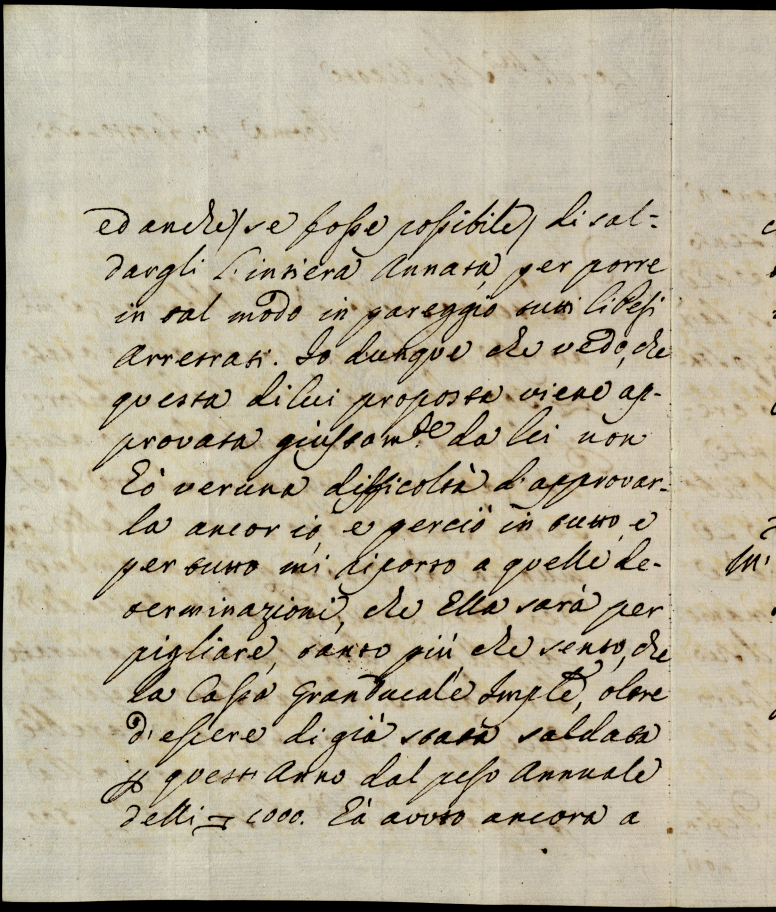 ed anche/ se fosse possibile/ di sal=
dargli l'intiera Annata, per porre
in tal modo in pareggio tutti li Pesi
Arretrati. Io dunque che vedo, che
questa di lui proposta viene ap-
provata giustam.te da lei non
hò veruna difficoltà d'approvar-
la ancor io, e perciò in tutto, e
per tutto mi riporto a quelle de-
terminazioni, che Ella sarà per
pigliare, tanto più che sento, che
la Cassa Granducale, oltre
d'essere di già stata saldata
quest'Anno dal peso Annuale
delli 1000. hà avuto ancora a